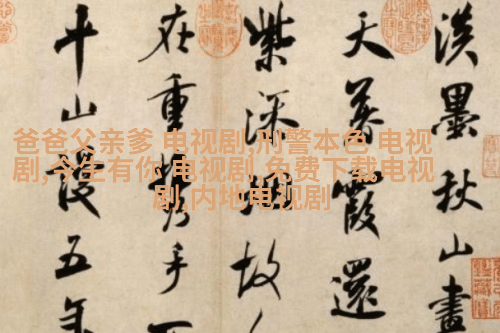 淡墨秋山畫
天暮霞還
紫添烟故人
在重攜手不
平山謾五年
爸爸父亲爹 电视剧,刑警本色 电视
剧,今生有你 电视剧 免费下载,电视
剧,内地电视剧